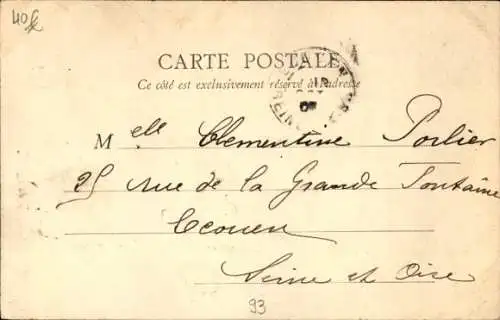 40
CARTE POSTALE
Ce côté est exclusivement réservé à l'adresse
Melle Clementine Porlier
25 rue de la Grande Fontaine
Ecouen
Seine et Oise
93